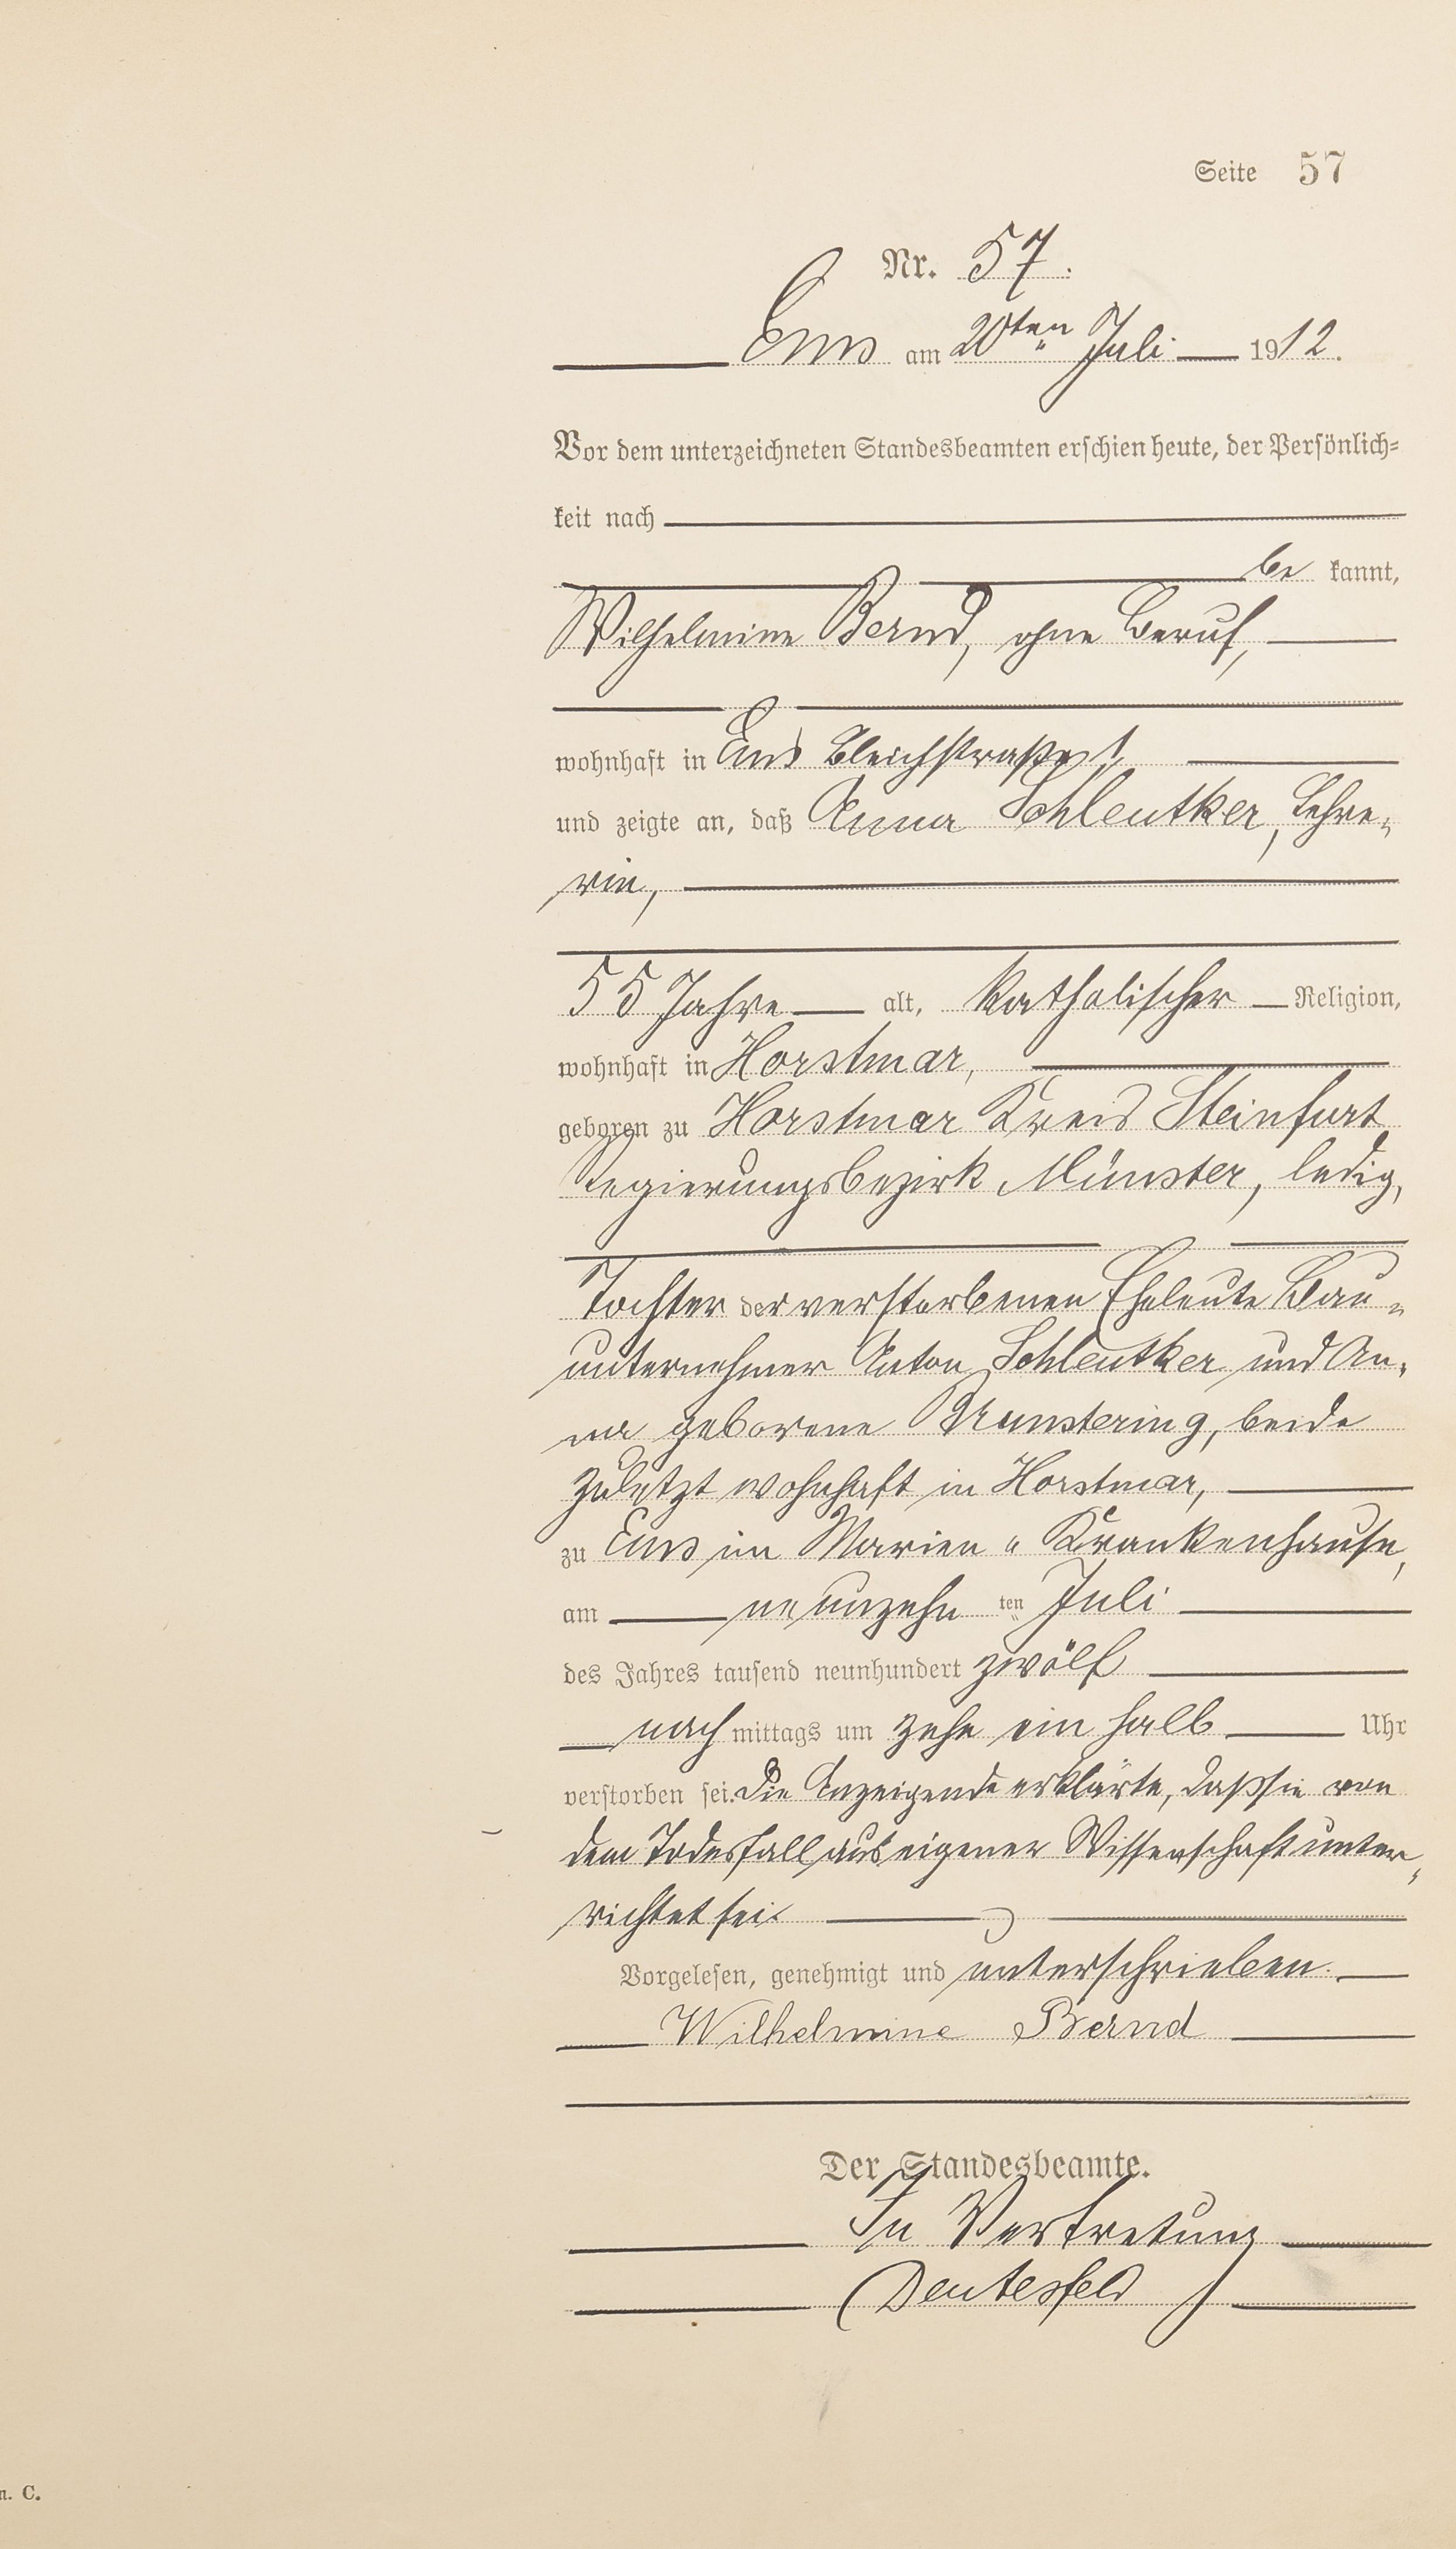 Seite 57
Nr. 57.
Ems am 20ten Juli 1912.
Vor dem unterzeichneten Standesbeamten erschien heute, der Persönlich-
keit nach
be kannt,
Wilhelmine Bernd, ohne Beruf,
wohnhaft in Ems Bleichstraße 1,
und zeigte an, daß Anna Schlentker, Lehre-
rin,
55 Jahre alt, katholischer Religion,
wohnhaft in Horstmar,
geboren zu Horstmar Kreis Steinfurt
Regierungsbezirk Münster, ledig,
Tochter der verstorbenen Eheleute Bau-
unternehmer Anton Schlentker und An-
na geborene Munstering, beide
zuletzt wohnhaft in Horstmar,
zu Ems im Marien-Krankenhause,
am neunzehn ten Juli
des Jahres tausend neunhundert zwölf
nach mittags um zehn ein halb Uhr
verstorben sei. Die Anzeigende erklärte, daß sie von
dem Todesfall aus eigener Wissenschaft unter-
richtet sei.
Vorgelesen, genehmigt und unterschrieben.
Wilhelmine Bernd
Der Standesbeamte.
In Vertretung
Deutesfeld
n. C.